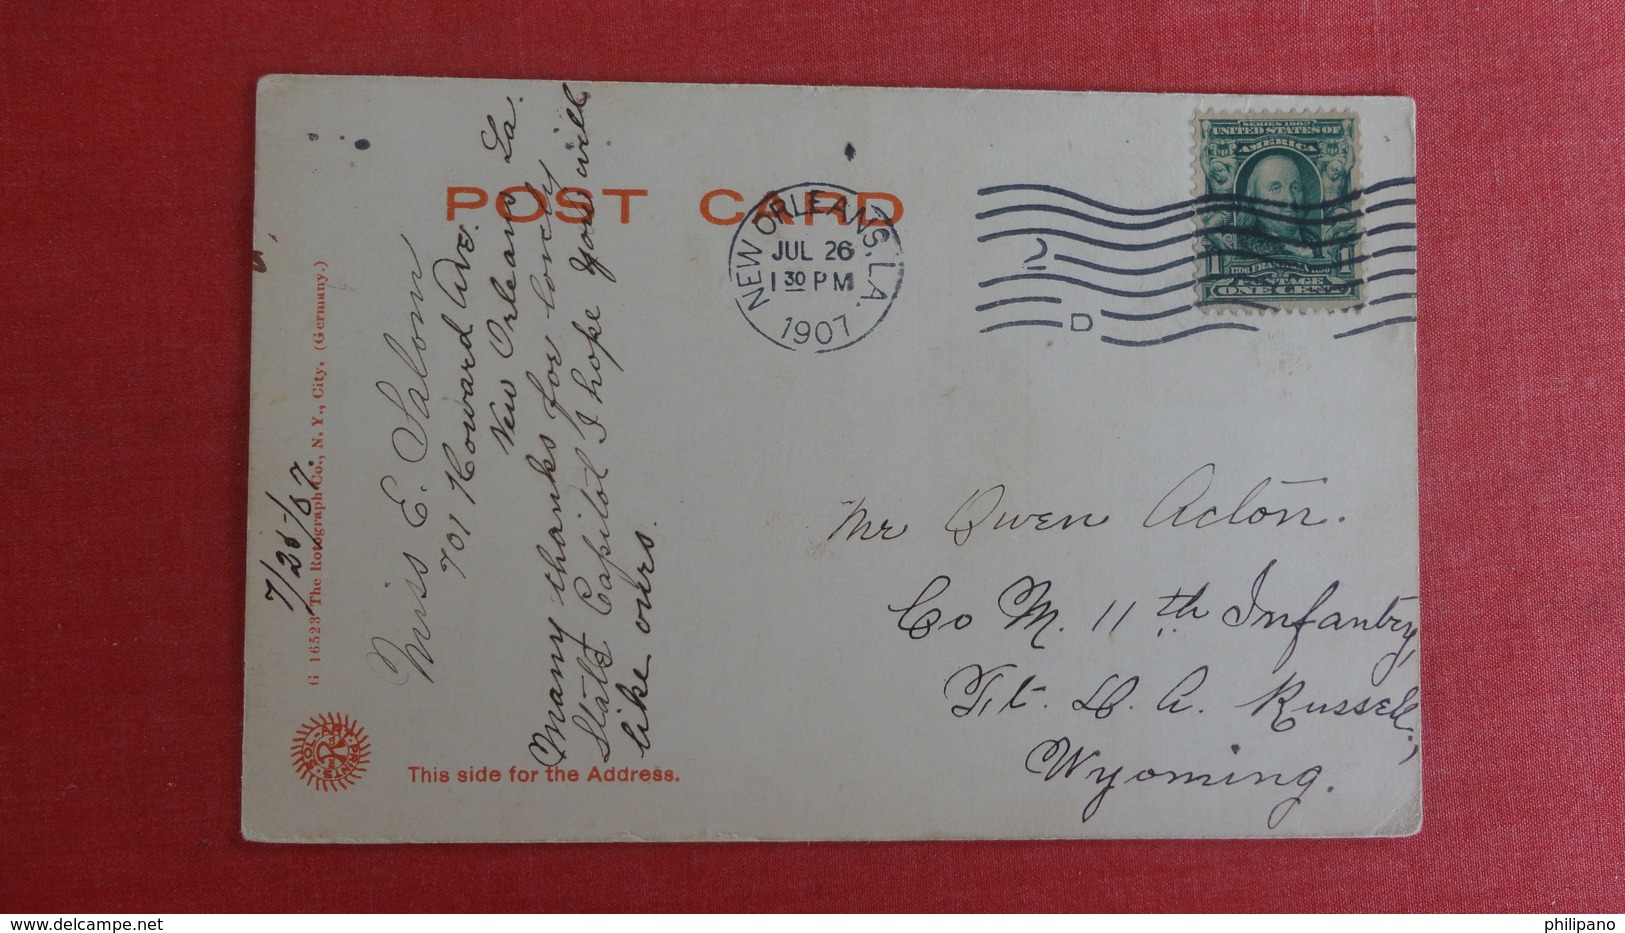 POST CARD
NEW ORLEANS, LA.
JUL 26
1 30 PM
1907
D
SERIES 1902
UNITED STATES OF
AMERICA
1706 FRANKLIN 1790
POSTAGE
1 ONE CENT 1
Mr Owen Acton.
Co M. 11th Infantry,
Ft. D. A. Russell,
Wyoming.
7/25/07.
G 16523 The Rotograph Co., N. Y., City. (Germany.)
Miss E. Salom
701 Howard Ave.
New Orleans La.
Many thanks for lovely
State Capitol I hope you will
like ours.
SOL-ART PRINTS
This side for the Address.
www.delcampe.net
philipano